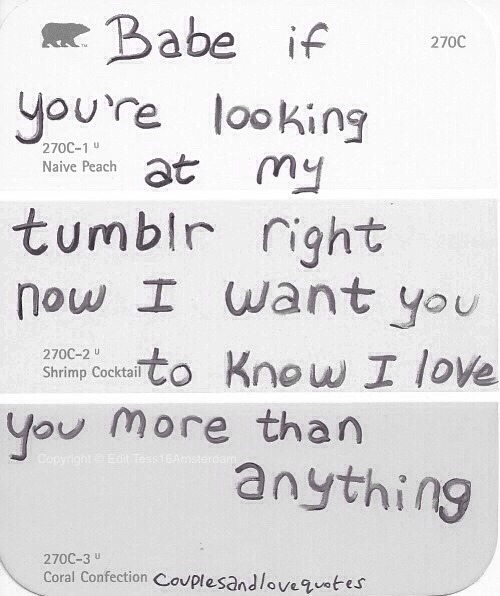 Babe if
270C
you're looking
270C-1 U
Naive Peach
at my
tumblr right
now I want you
270C-2 U
Shrimp Cocktail
to know I love
you more than
Copyright © Edit Tess16Amsterdam
anything
270C-3 U
Coral Confection
couplesandlovequotes